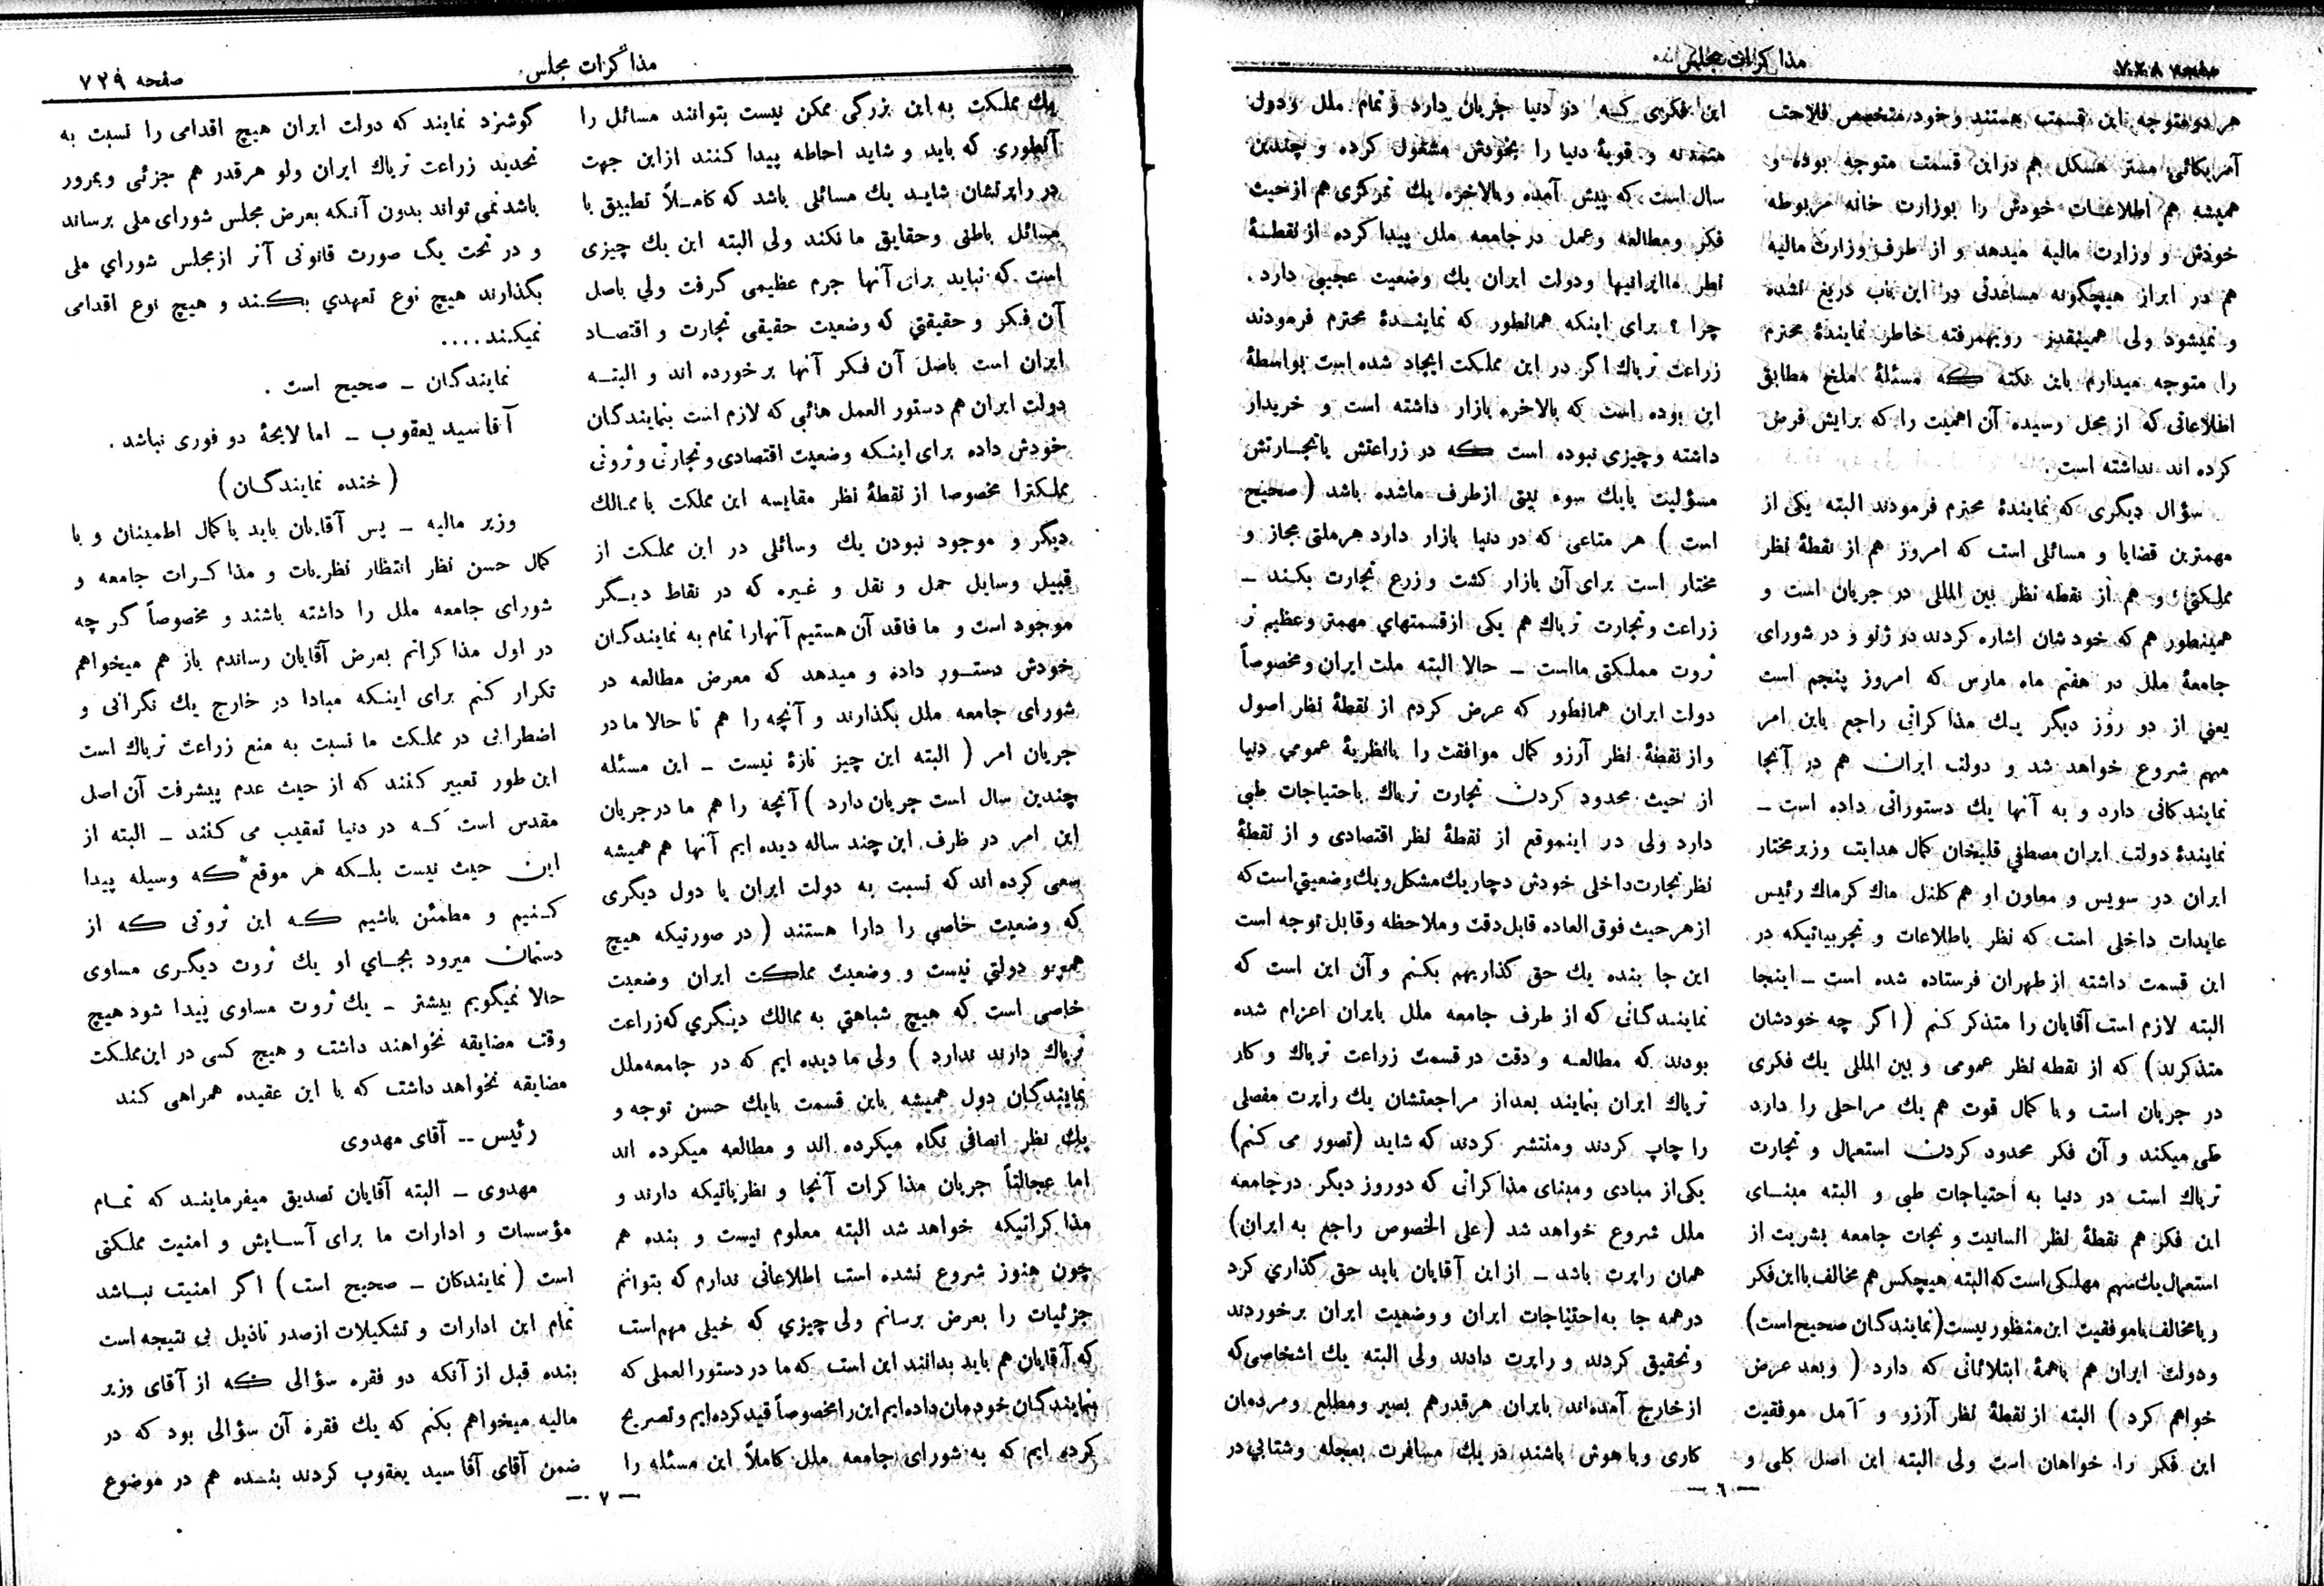 صفحه ۷۲۸
مذاکرات مجلس
هر دو متوجه این قسمت هستند و خود متخصص فلاحت
آمریکائی مستر هسکل هم دراین قسمت متوجه بوده و
همیشه هم اطلاعات خودش را بوزارت خانه مربوطه
خودش و وزارت مالیه میدهد و از طرف وزارت مالیه
هم در ابراز هیچگونه مساعدتی در این باب دریغ نشده
و نمیشود ولی همینقدر رویهمرفته خاطر نمایندهٔ محترم
را متوجه میدارم باین نکته که مسئلهٔ ملخ مطابق
اطلاعاتی که از محل رسیده آن اهمیت را که برایش فرض
کرده اند نداشته است .
سؤال دیگری که نمایندهٔ محترم فرمودند البته یکی از
مهمترین قضایا و مسائلی است که امروز هم از نقطهٔ نظر
مملکتی و هم از نقطه نظر بین المللی در جریان است و
همینطور هم که خودشان اشاره کردند در ژنو و در شورای
جامعهٔ ملل در هفتم ماه مارس که امروز پنجم است
یعنی از دو روز دیگر یک مذاکراتی راجع باین امر
مهم شروع خواهد شد و دولت ایران هم در آنجا
نمایندگانی دارد و به آنها یک دستوراتی داده است ـ
نمایندهٔ دولت ایران مصطفی قلیخان کمال هدایت وزیرمختار
ایران در سویس و معاون او هم کلنل ماک کرماک رئیس
عایدات داخلی است که نظر باطلاعات و تجربیاتیکه در
این قسمت داشته از طهران فرستاده شده است ـ اینجا
البته لازم است آقایان را متذکر کنم (اگر چه خودشان
متذکرند) که از نقطه نظر عمومی و بین المللی یک فکری
در جریان است و با کمال قوت هم یک مراحلی را دارد
طی میکند و آن فکر محدود کردن استعمال و تجارت
تریاک است در دنیا به احتیاجات طبی و البته مبنای
این فکر هم نقطهٔ نظر انسانیت و نجات جامعه بشریت از
استعمال یک سهم مهلکی است که البته هیچکس هم مخالف با این فکر
و یا مخالف با موفقیت این منظور نیست (نمایندگان صحیح است)
و دولت ایران هم باهمهٔ ابتلائاتی که دارد ( و بعد عرض
خواهم کرد ) البته از نقطهٔ نظر آرزو و آمل موفقیت
این فکر را خواهان است ولی البته این اصل کلی و
این فکری که در دنیا جریان دارد و تمام ملل و دول
متمدنه و قویهٔ دنیا را بخودش مشغول کرده و چندین
سال است که پیش آمده و بالاخره یک تمرکزی هم از حیث
فکر و مطالعه و عمل در جامعه ملل پیدا کرده از نقطهٔ
نظر ما ایرانیها و دولت ایران یک وضعیت عجیبی دارد .
چرا ؟ برای اینکه همانطور که نمایندهٔ محترم فرمودند
زراعت تریاک اگر در این مملکت ایجاد شده است بواسطهٔ
این بوده است که بالاخره بازار داشته است و خریدار
داشته و چیزی نبوده است که در زراعتش یا تجارتش
مسؤلیت یا یک سوء نیتی از طرف ما شده باشد (صحیح
است ) هر متاعی که در دنیا بازار دارد هر ملتی مجاز و
مختار است برای آن بازار کشت و زرع تجارت بکند ـ
زراعت و تجارت تریاک هم یکی از قسمتهای مهمتر و عظیم تر
ثروت مملکتی ما است ـ حالا البته ملت ایران و مخصوصاً
دولت ایران همانطور که عرض کردم از نقطهٔ نظر اصول
و از نقطهٔ نظر آرزو کمال موافقت را بانظریهٔ عمومی دنیا
از حیث محدود کردن تجارت تریاک باحتیاجات طبی
دارد ولی در اینموقع از نقطهٔ نظر اقتصادی و از نقطهٔ
نظر تجارت داخلی خودش دچار یک مشکل و یک وضعیتی است که
از هر حیث فوق العاده قابل دقت و ملاحظه و قابل توجه است
این جا بنده یک حق گذاریهم بکنم و آن این است که
نمایندگانی که از طرف جامعه ملل بایران اعزام شده
بودند که مطالعه و دقت در قسمت زراعت تریاک و کار
تریاک ایران بنمایند بعد از مراجعتشان یک راپرت مفصلی
را چاپ کردند و منتشر کردند که شاید (تصور می کنم)
یکی از مبادی و مبنای مذاکراتی که دو روز دیگر در جامعه
ملل شروع خواهد شد (علی الخصوص راجع به ایران)
همان راپرت باشد ـ از این آقایان باید حق گذاری کرد
در همه جا به احتیاجات ایران و وضعیت ایران برخوردند
و تحقیق کردند و راپرت دادند ولی البته یک اشخاصی که
از خارج آمده اند بایران هر قدر هم بصیر و مطلع و مردمان
کاری و با هوش باشند در یک مسافرت بعجله و شتابی در
— ٦ —
مذاکرات مجلس
صفحه ۷۲۹
یک مملکت به این بزرگی ممکن نیست بتوانند مسائل را
آنطوری که باید و شاید احاطه پیدا کنند از این جهت
در راپرتشان شاید یک مسائلی باشد که کاملاً تطبیق با
مسائل باطنی و حقایق ما نکند ولی البته این یک چیزی
است که نباید برای آنها جرم عظیمی گرفت ولی باصل
آن فکر و حقیقتی که وضعیت حقیقی تجارت و اقتصاد
ایران است باصل آن فکر آنها برخورده اند و البته
دولت ایران هم دستور العمل هائی که لازم است بنمایندگان
خودش داده برای اینکه وضعیت اقتصادی و تجارتی و ثروتی
مملکترا مخصوصا از نقطهٔ نظر مقایسه این مملکت با ممالک
دیگر و موجود نبودن یک وسائلی در این مملکت از
قبیل وسایل حمل و نقل و غیره که در نقاط دیگر
موجود است و ما فاقد آن هستیم آنهارا تمام به نمایندگان
خودش دستور داده و میدهد که معرض مطالعه در
شورای جامعه ملل بگذارند و آنچه را هم تا حالا ما در
جریان امر ( البته این چیز تازهٔ نیست ـ این مسئله
چندین سال است جریان دارد ) آنچه را هم ما در جریان
این امر در ظرف این چند ساله دیده ایم آنها هم همیشه
سعی کرده اند که نسبت به دولت ایران یا دول دیگری
که وضعیت خاصی را دارا هستند ( در صورتیکه هیچ
همچو دولتی نیست و وضعیت مملکت ایران وضعیت
خاصی است که هیچ شباهتی به ممالک دیگری که زراعت
تریاک دارند ندارد ) ولی ما دیده ایم که در جامعه ملل
نمایندگان دول همیشه باین قسمت بایک حسن توجه و
یک نظر انصافی نگاه میکرده اند و مطالعه میکرده اند
اما عجالتاً جریان مذاکرات آنجا و نظریاتیکه دارند و
مذاکراتیکه خواهد شد البته معلوم نیست و بنده هم
چون هنوز شروع نشده است اطلاعاتی ندارم که بتوانم
جزئیات را بعرض برسانم ولی چیزی که خیلی مهم است
که آقایان هم باید بدانند این است که ما در دستورالعملی که
بنمایندگان خودمان داده ایم این را مخصوصاً قید کرده ایم و تصریح
کرده ایم که به شورای جامعه ملل کاملاً این مسئله را
گوشزد نمایند که دولت ایران هیچ اقدامی را نسبت به
تحدید زراعت تریاک ایران ولو هر قدر هم جزئی و بمرور
باشد نمی تواند بدون آنکه بعرض مجلس شورای ملی برساند
و در تحت یک صورت قانونی آنر از مجلس شورای ملی
بگذارند هیچ نوع تعهدی بکند و هیچ نوع اقدامی
نمیکند ....
نمایندگان ـ صحیح است .
آقا سید یعقوب ـ اما لایحهٔ دو فوری نباشد .
(خنده نمایندگان)
وزیر مالیه ـ پس آقایان باید با کمال اطمینان و با
کمال حسن نظر انتظار نظریات و مذاکرات جامعه و
شورای جامعه ملل را داشته باشند و مخصوصاً گر چه
در اول مذاکراتم بعرض آقایان رساندم باز هم میخواهم
تکرار کنم برای اینکه مبادا در خارج یک نگرانی و
اضطرابی در مملکت ما نسبت به منع زراعت تریاک است
این طور تعبیر کنند که از حیث عدم پیشرفت آن اصل
مقدس است که در دنیا تعقیب می کنند ـ البته از
این حیث نیست بلکه هر موقع که وسیله پیدا
کنیم و مطمئن باشیم که این ثروتی که از
دستمان میرود بجای او یک ثروت دیگری مساوی
حالا نمیگویم بیشتر ـ یک ثروت مساوی پیدا شود هیچ
وقت مضایقه نخواهند داشت و هیچ کسی در این مملکت
مضایقه نخواهد داشت که با این عقیده همراهی کند
رئیس ــ آقای مهدوی
مهدوی ـ البته آقایان تصدیق میفرمایند که تمام
مؤسسات و ادارات ما برای آسایش و امنیت مملکتی
است (نمایندگان ـ صحیح است) اگر امنیت نباشد
تمام این ادارات و تشکیلات از صدر تا ذیل بی نتیجه است
بنده قبل از آنکه دو فقره سؤالی که از آقای وزیر
مالیه میخواهم بکنم که یک فقره آن سؤالی بود که در
ضمن آقای آقا سید یعقوب کردند بنده هم در موضوع
— ۷ —